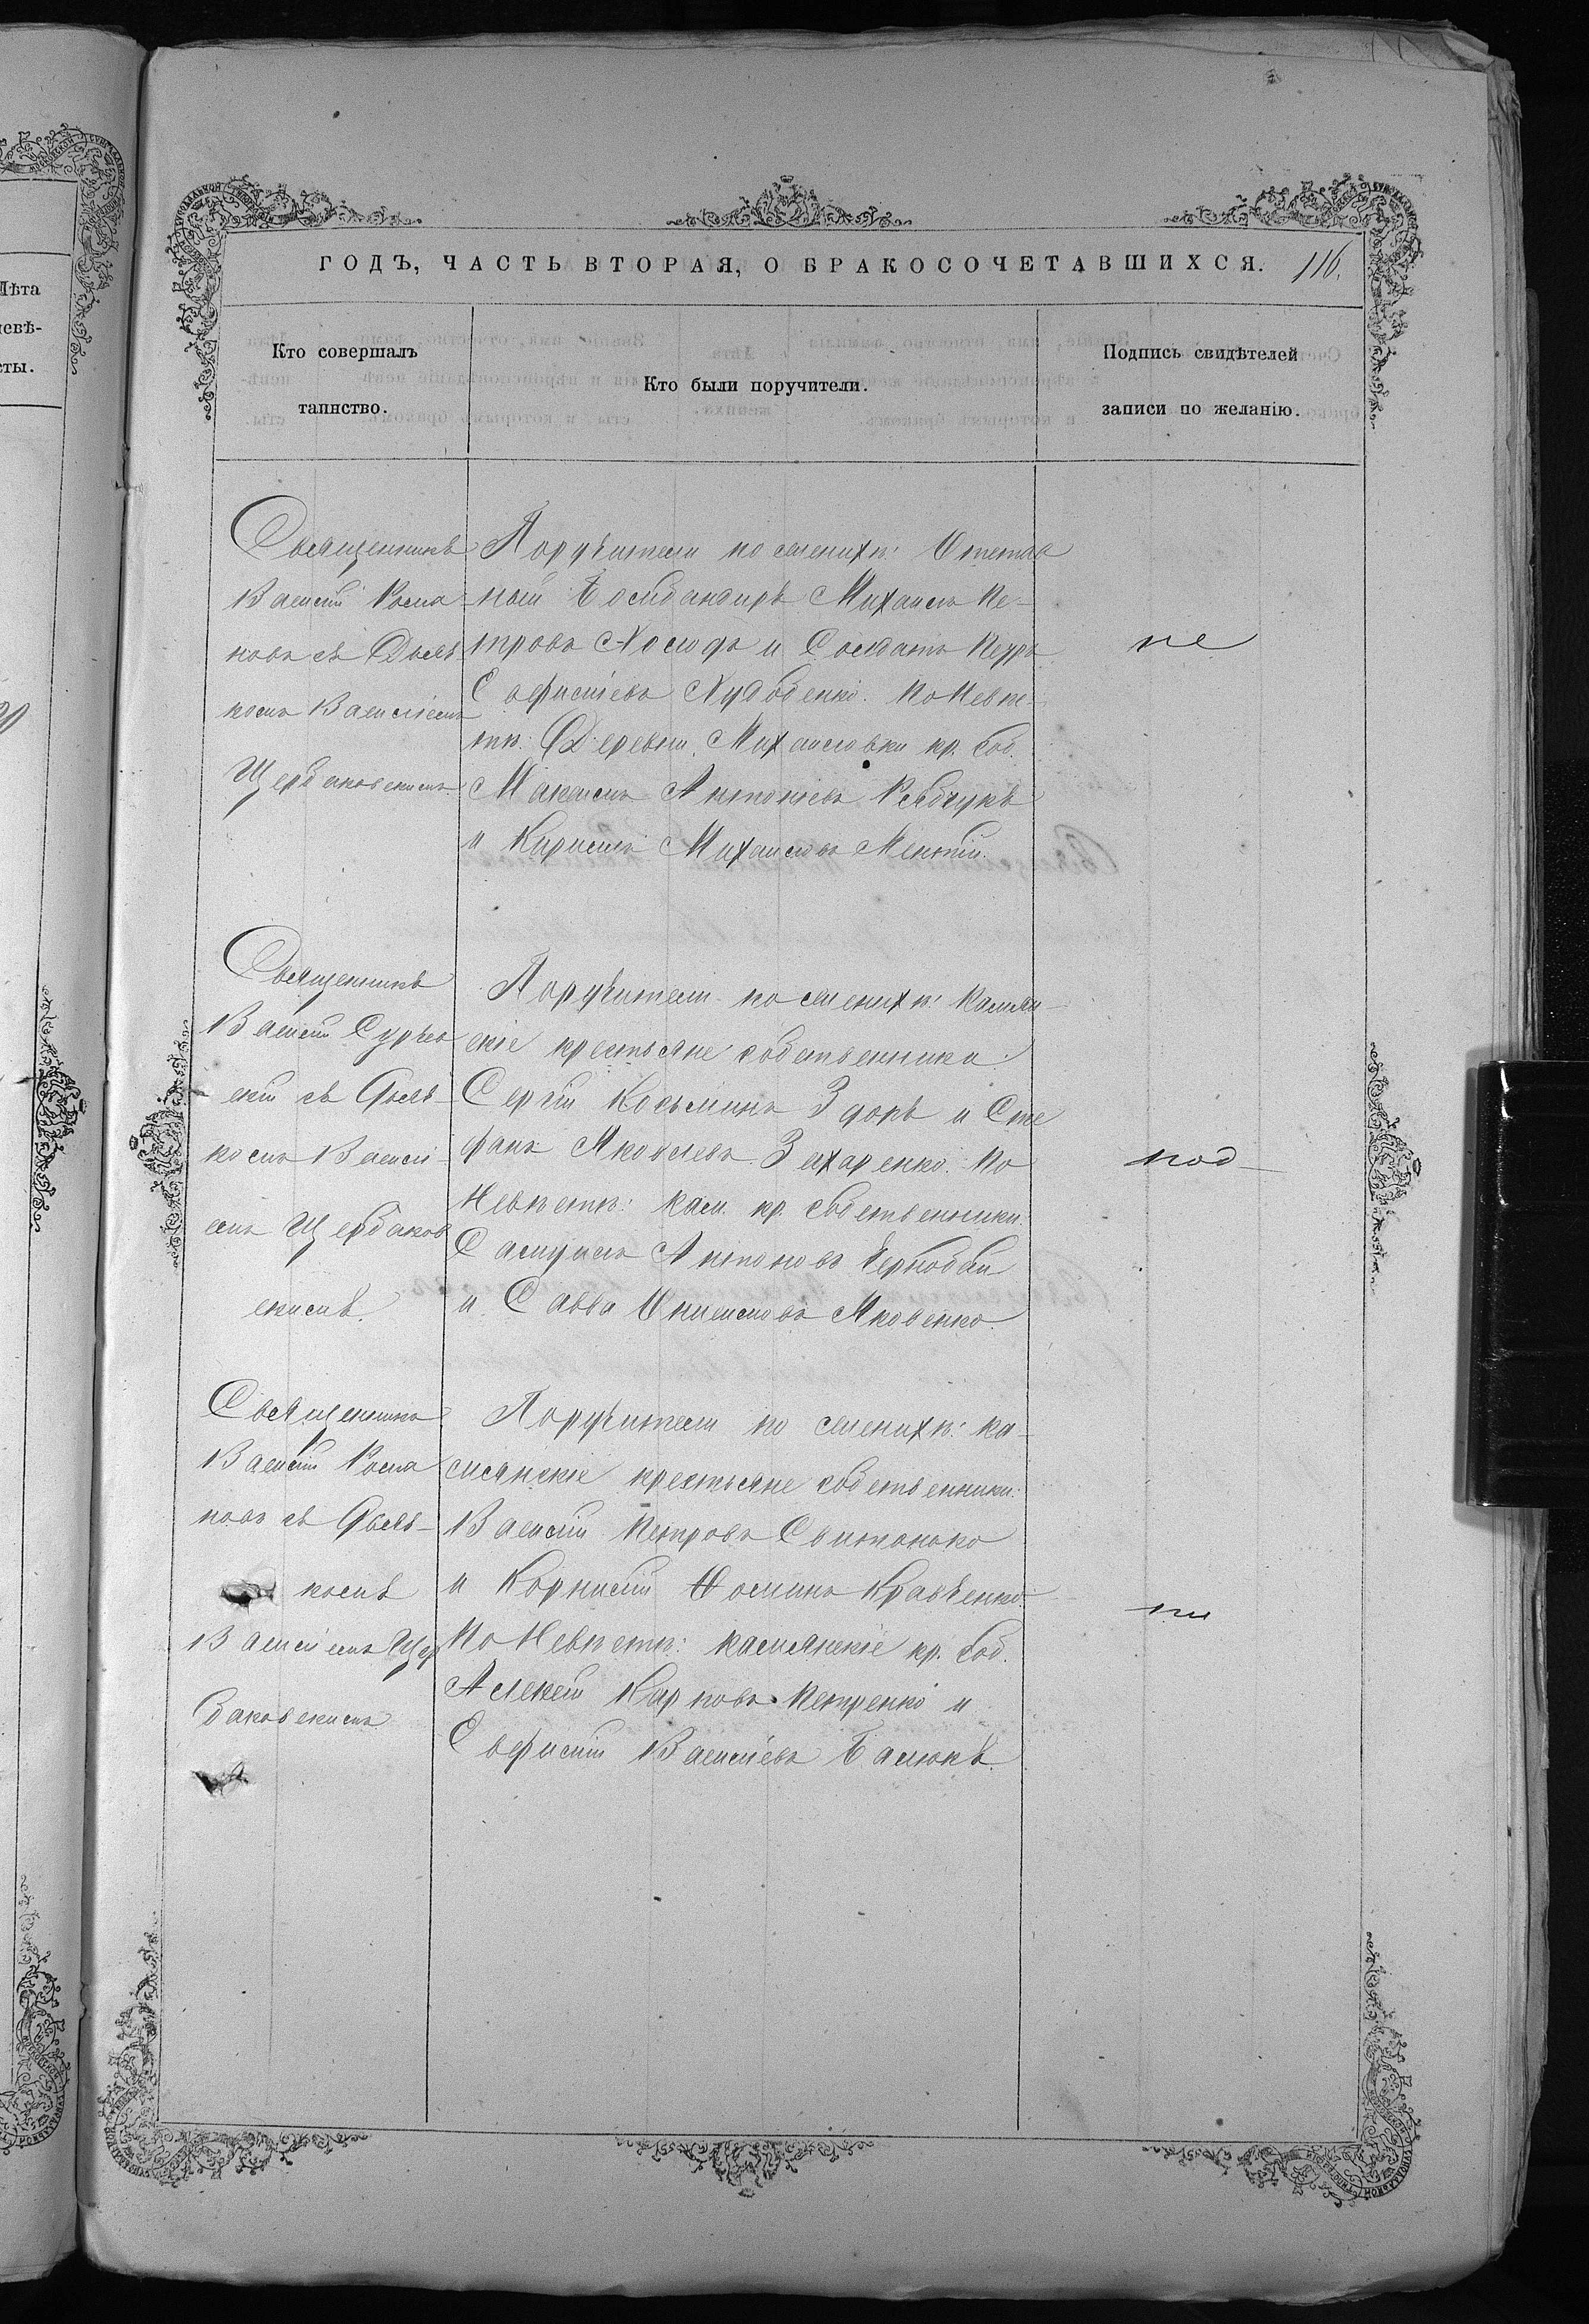 Лѣта
невѣ-
сты.
ГОДЪ, ЧАСТЬ ВТОРАЯ, О БРАКОСОЧЕТАВШИХСЯ. 116.
Кто совершалъ
таинство.
Кто были поручители.
Подпись свидѣтелей
записи по желанію.
Священникъ
Василій Рома
новъ съ Дьяч
комъ Василіемъ
Щербаковскимъ.
Поручители по женихѣ: Отстав
ный Бомбандиръ Михаилъ Пе-
тровъ и Солдатъ Петръ
по Невѣс-
тѣ: Деревни Михайловки кр. соб.
Максимъ Антоніевъ Рябчукъ
и Кирилъ Михаиловъ
не
Священникъ
Василій
скій съ Дьяч-
комъ Василі-
емъ Щербаков
скимъ.
Поручители по женихѣ: Камян-
скіе крестьяне собственники:
Сергій Косьминъ Здоръ и Сте
фанъ Яковлевъ Захаренко. По
Невѣстѣ: Кам. кр. собственники.
Самуилъ Антоновъ Чернобай
и Савва Онисимовъ Яковенко.
под-
Священникъ
Василій Рома
новъ съ Дьяч-
комъ
Василіемъ Щер
баковскимъ
Поручители по женихѣ: ка-
мянскіе крестьяне собственники:
Василій Петровъ
и Корнилій Ѳоминъ Кравченко.
По Невѣстѣ: камянскіе кр. соб.
Алексѣй Карповъ Петренко и
Василіевъ Балюкъ.